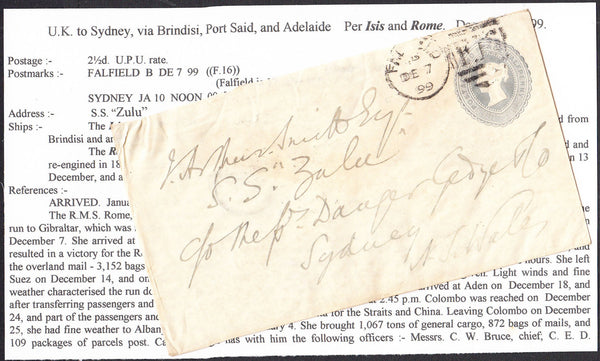 U.K. to Sydney, via Brindisi, Port Said, and Adelaide Per Isis and Rome. De 99.
Postage :- 2½d. U.P.U. rate.
Postmarks :- FALFIELD B DE 7 99 ((F.16))
(Falfield i
SYDNEY JA 10 NOON 00
Address :- S.S. "Zulu"
Ships :- The
Brindisi and ar
The R
re-engined in 18
December, and a
References :-
ARRIVED. Janua
The R.M.S. Rome,
run to Gibraltar, which was
December 7. She arrived at
resulted in a victory for the Ra
the overland mail - 3,152 bags
Suez on December 14, and on
weather characterised the run do
after transferring passengers and
24, and part of the passengers and
25, she had fine weather to Albany
109 packets of parcels post. Ca
from
13
hours. She left
Light winds and fine
arrived at Aden on December 18, and
at 2.45 p.m. Colombo was reached on December
for the Straits and China. Leaving Colombo on December
4. She brought 1,067 tons of general cargo, 872 bags of mails, and
has with him the following officers :- Messrs. C. W. Bruce, chief, C. E. D.
B
DE 7
99
J. Arthur Smith Esqr.
S.S. "Zulu"
c/o The Dangar Gedye & Co
Sydney
N. S. Wales